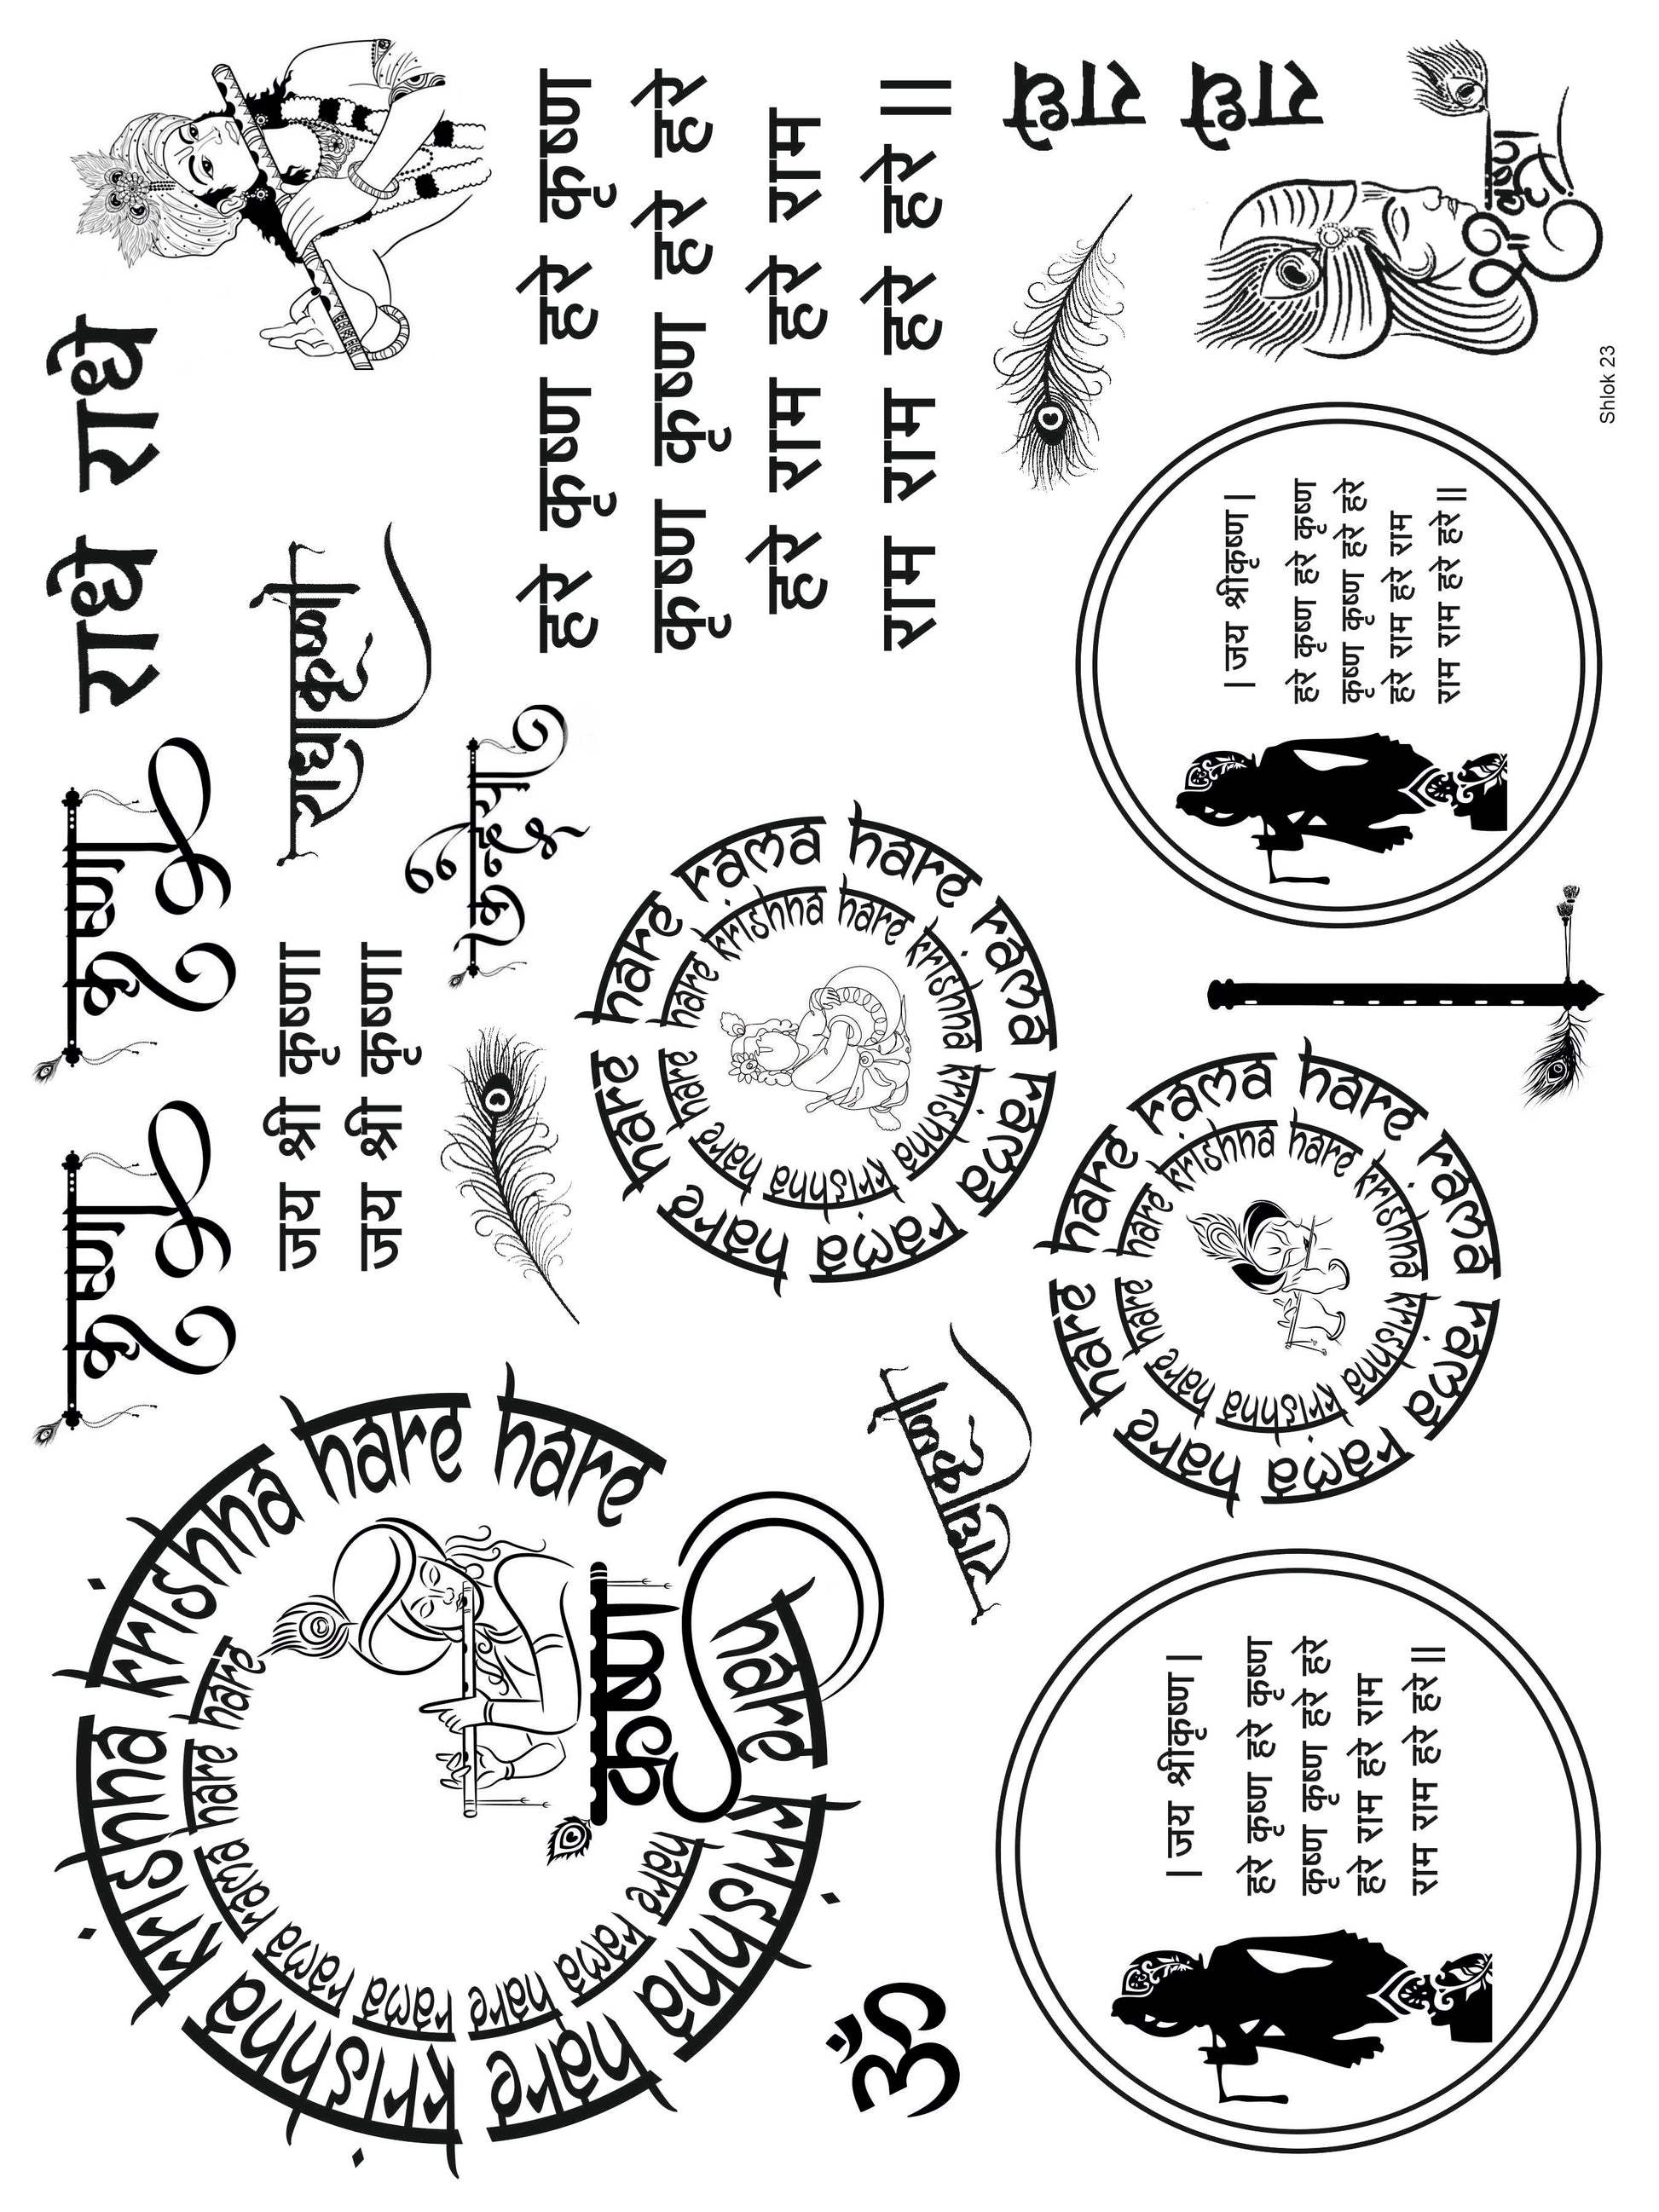 कृष्ण
कृष्ण
राधे राधे
hare krishna hare krishna krishna krishna hare hare
hare rama hare rama rama rama hare hare
कृष्ण
जय श्री कृष्णा
जय श्री कृष्णा
राधाकृष्ण
कन्हैया
हरे कृष्ण हरे कृष्ण
कृष्ण कृष्ण हरे हरे
हरे राम हरे राम
राम राम हरे हरे ||
hare rama hare rama rama rama hare hare
hare krishna hare krishna krishna krishna hare hare
ॐ
राधाकृष्ण
राधे राधे
|जय श्रीकृष्ण|
हरे कृष्ण हरे कृष्ण
कृष्ण कृष्ण हरे हरे
हरे राम हरे राम
राम राम हरे हरे||
hare rama hare rama rama rama hare hare
hare krishna hare krishna krishna krishna hare hare
|जय श्रीकृष्ण|
हरे कृष्ण हरे कृष्ण
कृष्ण कृष्ण हरे हरे
हरे राम हरे राम
राम राम हरे हरे||
Shlok 23